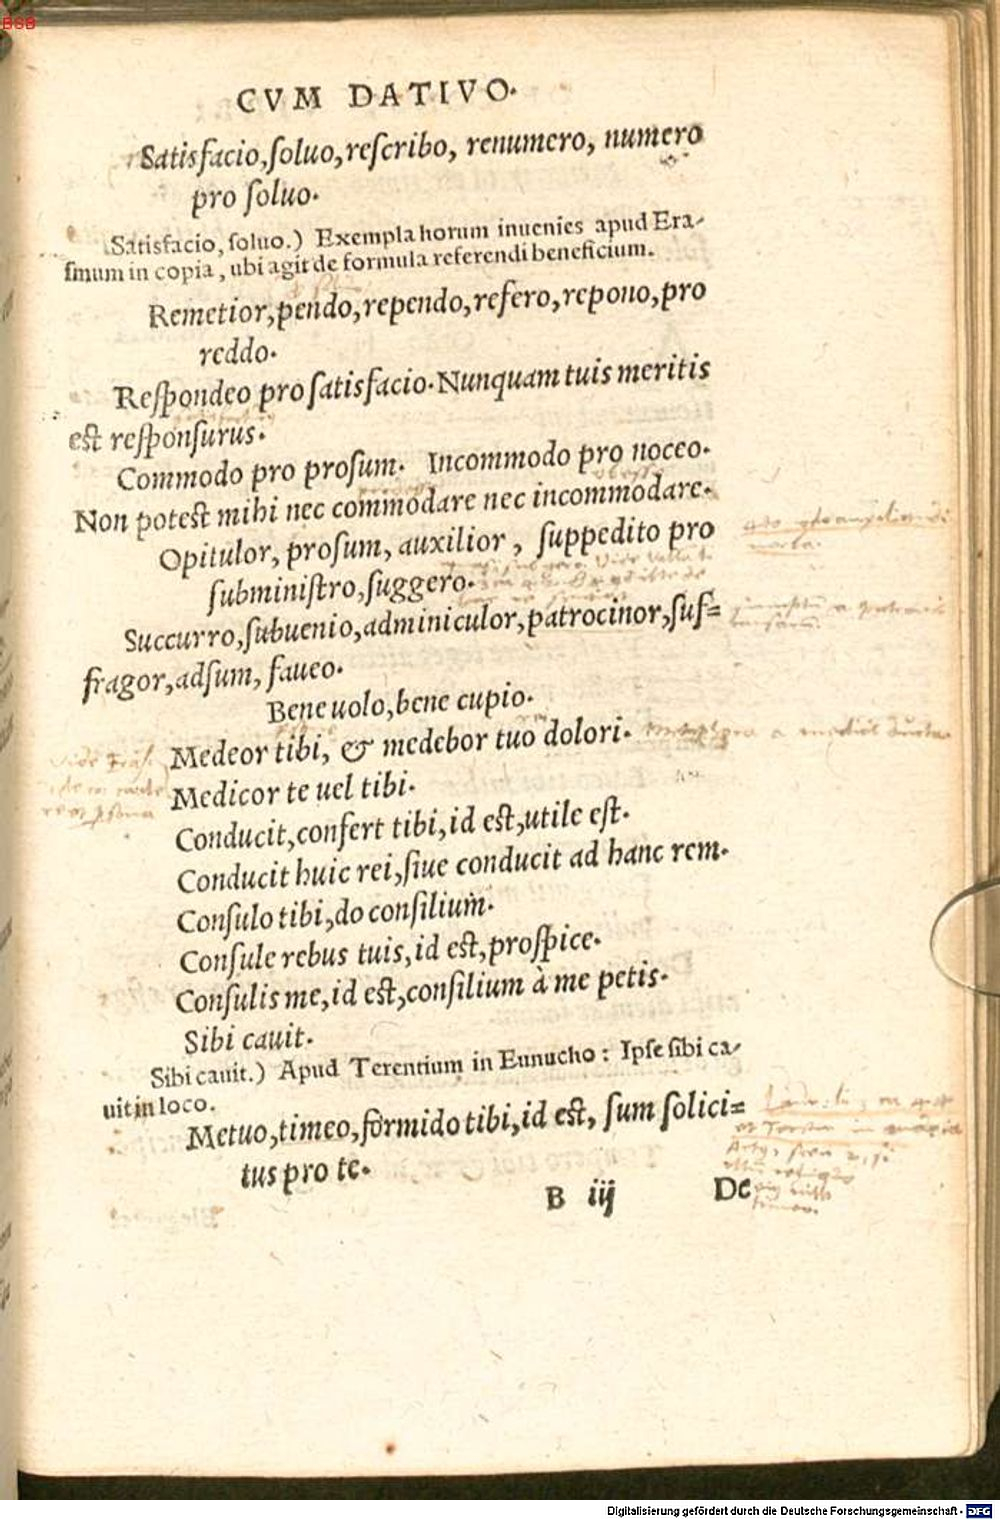 BSB
CVM DATIVO.
Satisfacio, ſoluo, reſcribo, renumero, numero
pro ſoluo.
Satisfacio, ſoluo.) Exempla horum inuenies apud Era-
ſmum in copia, ubi agit de formula referendi beneficium.
Remetior, pendo, rependo, refero, repono, pro
reddo.
Reſpondeo pro ſatisfacio. Nunquam tuis meritis
est reſponſurus.
Commodo pro proſum. Incommodo pro noceo.
Non potest mihi nec commodare nec incommodare.
Opitulor, proſum, auxilior, ſuppedito pro
ſubminiſtro, ſuggero.
Succurro, ſubuenio, adminiculor, patrocinor, ſuf=
fragor, adſum, faueo.
Bene uolo, bene cupio.
Medeor tibi, & medebor tuo dolori. a medicis ducta
Medicor te uel tibi.
Conducit, confert tibi, id est, utile eſt.
Conducit huic rei, ſiue conducit ad hanc rem.
Conſulo tibi, do conſilium.
Conſule rebus tuis, id est, proſpice.
Conſulis me, id est, conſilium à me petis.
Sibi cauit.
Sibi cauit.) Apud Terentium in Eunucho: Ipſe ſibi ca-
uit in loco.
Metuo, timeo, formido tibi, id est, ſum ſolici=
tus pro te.
B iij De
Digitalisierung gefördert durch die Deutsche Forschungsgemeinschaft - DFG